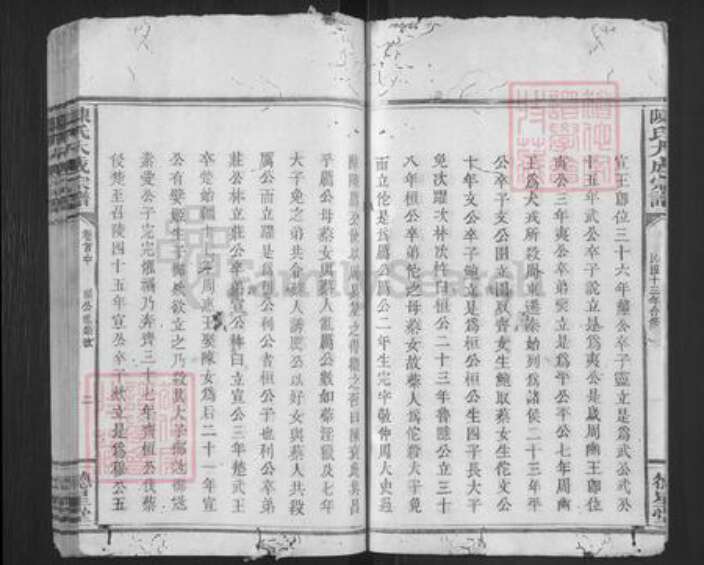 陳氏大成宗譜
民國十三年合修
德星堂
宣王卽位三十六年釐公卒子靈立是爲武公武公
十五年武公卒子說立是爲夷公是歲周幽王卽位
夷公三年夷公卒弟燮立是爲平公平公七年周幽
王爲犬戎所殺周東遷秦始列爲諸侯二十三年平
公卒子文公圉立圉取蔡女生鮑取蔡女生佗文公
十年文公卒子鮑立是爲桓公桓公生四子長太子
免次躍次林次杵臼桓公二十三年魯隱公立三十
八年桓公卒弟佗之母蔡女故蔡人爲佗殺太子免
而立佗是爲厲公厲公二年生完字敬仲周太史過
平厲公母蔡女與蔡人亂厲公數如蔡淫厲及七年
太子免之弟共令蔡人誘厲公以好女與蔡人共殺
厲公而立躍是爲利公利公者桓公子也利公卒弟
莊公林立莊公卒弟宣公杵臼立宣公三年楚武王
卒楚始疆十七年周惠王娶陳女爲后二十一年宣
公有嬖姬生子款欲立之乃殺其太子禦寇禦寇
素愛公子完完懼禍乃奔齊三十七年齊桓公伐蔡
侵楚至召陵四十五年宣公卒子款立是爲穆公五
卷首中
二
陳氏大成宗譜
德星堂